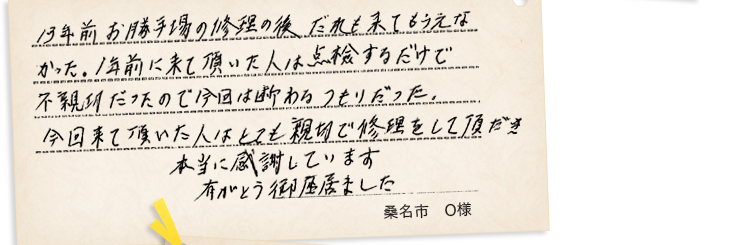 13年前お勝手場の修理の後だれも来てもらえな
かった。1年前に来て頂いた人は点検するだけで
不親切だったので今回は断わるつもりだった。
今回来て頂いた人はとても親切で修理をして頂だき
本当に感謝しています
有がとう御座居ました
桑名市 O様